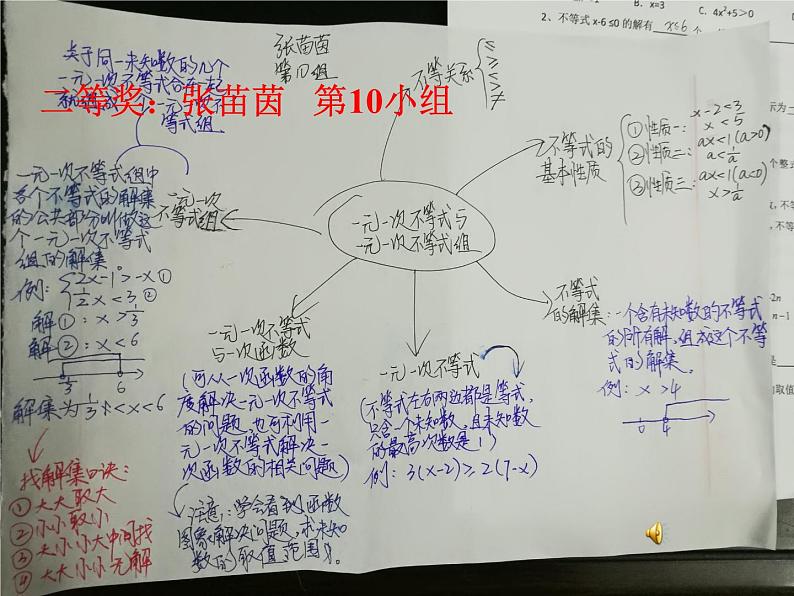 张苗茵
第10组
二等奖：张苗茵 第10小组
一元一次不等式与
一元一次不等式组
不等关系
≤
≥
<
>
≠
不等式的
基本性质
①性质一：
x-2<3
x<5
②性质二：
ax<1(a>0)
a<1/a
③性质三：
ax<1(a<0)
x>1/a
不等式
的解集：一个含有未知数的不等式
的所有解,组成这个不等
式的解集。
例：x>4
0 4
一元一次不等式
(不等式左右两边都是等式,
只含一个未知数,且未知数
的最高次数是1)
例：3(x-2)≥2(7-x)
一元一次不等式
与一次函数
(可从一次函数的角
度解决一元一次不等式
的问题,也可利用一
元一次不等式解决一
次函数的相关问题)
注意：学会看到函数
图象解决问题,求未知
数的取值范围)。
一元一次
不等式组
关于同一未知数的几个
一元一次不等式合在一起
就组成一个一元一次不
等式组
一元一次不等式组中
各个不等式的解集
的公共部分叫做这
个一元一次不等式
组的解集
例：{2x-1>-x①
1/2x<3②
解①：x>1/3
解②：x<6
1/3 6
解集为1/3<x<6
找解集口诀：
①大大取大
②小小取小
③大小小大中间找
④大大小小无解
B. x=3 C. 4x²+5>0
2、不等式 x-6≤0 的解有 x≤6 个